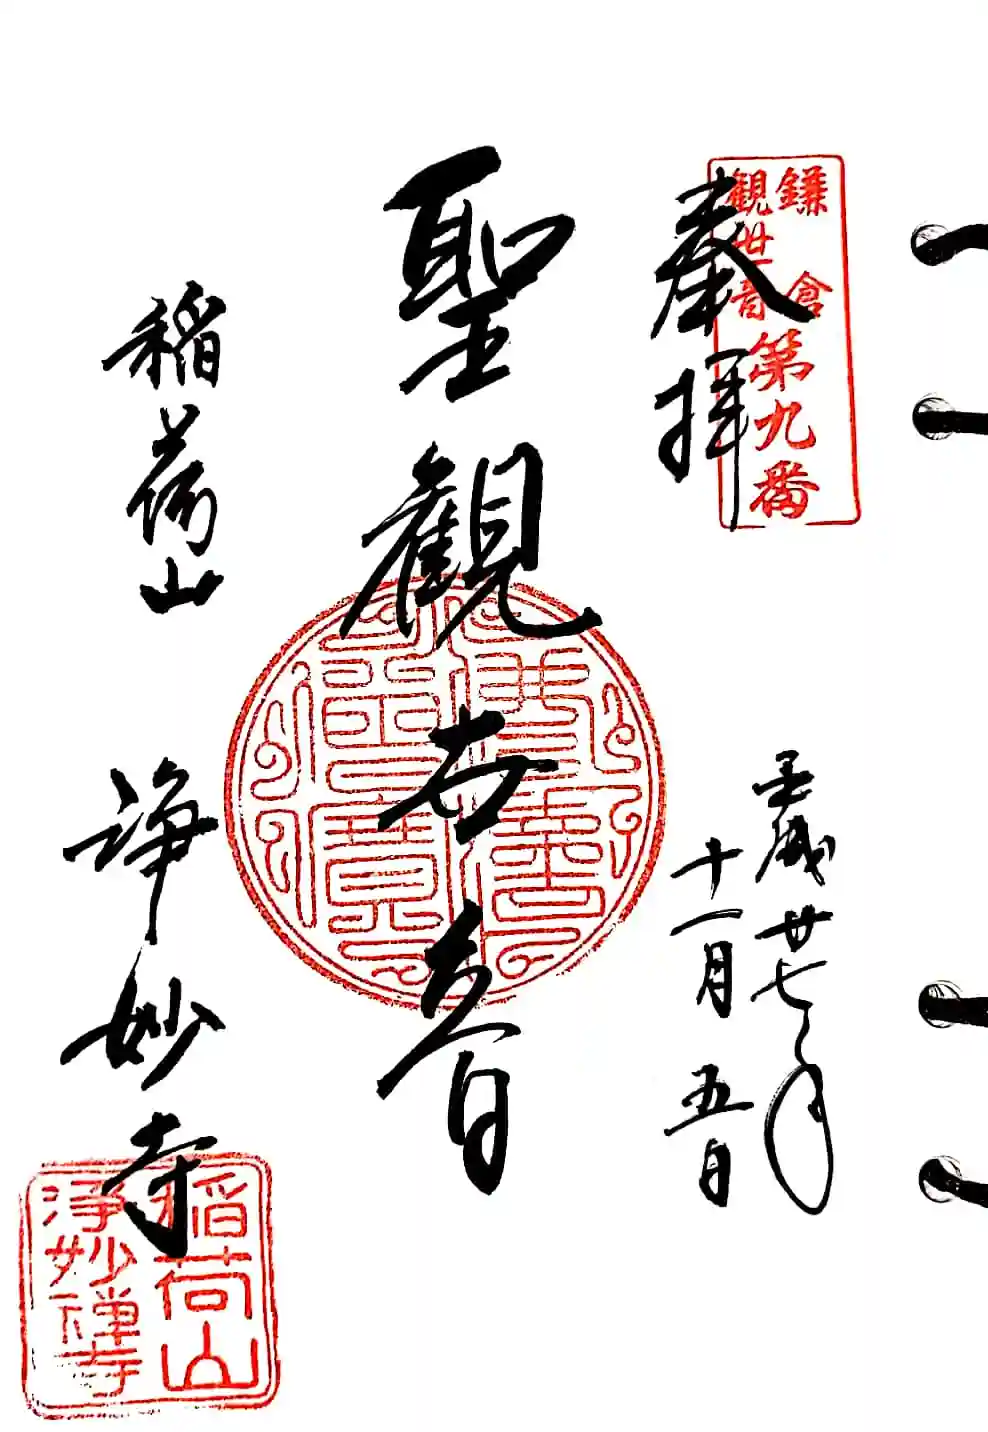 鎌倉
觀世音
第九番
奉拝
平成廿七年
十一月五日
聖觀世音
稲荷山
浄妙寺
稲荷山
浄妙禅寺